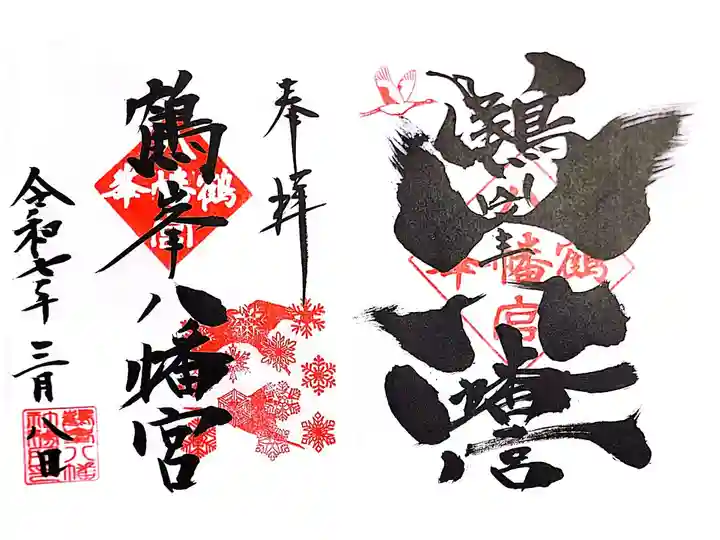 奉拝
鶴峯八幡宮
令和七年三月八日
鶴峯
八幡宮
鶴
幡
峯
宮
鶴
八幡
峯
宮